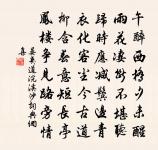 午醉西橋夕未醒
雨花凄斷不堪聽
歸時應減鬢邊青
衣化客塵今古道
柳含春意短長亭
鳳樓爭見路旁情
晏幾道浣溪沙詞典網